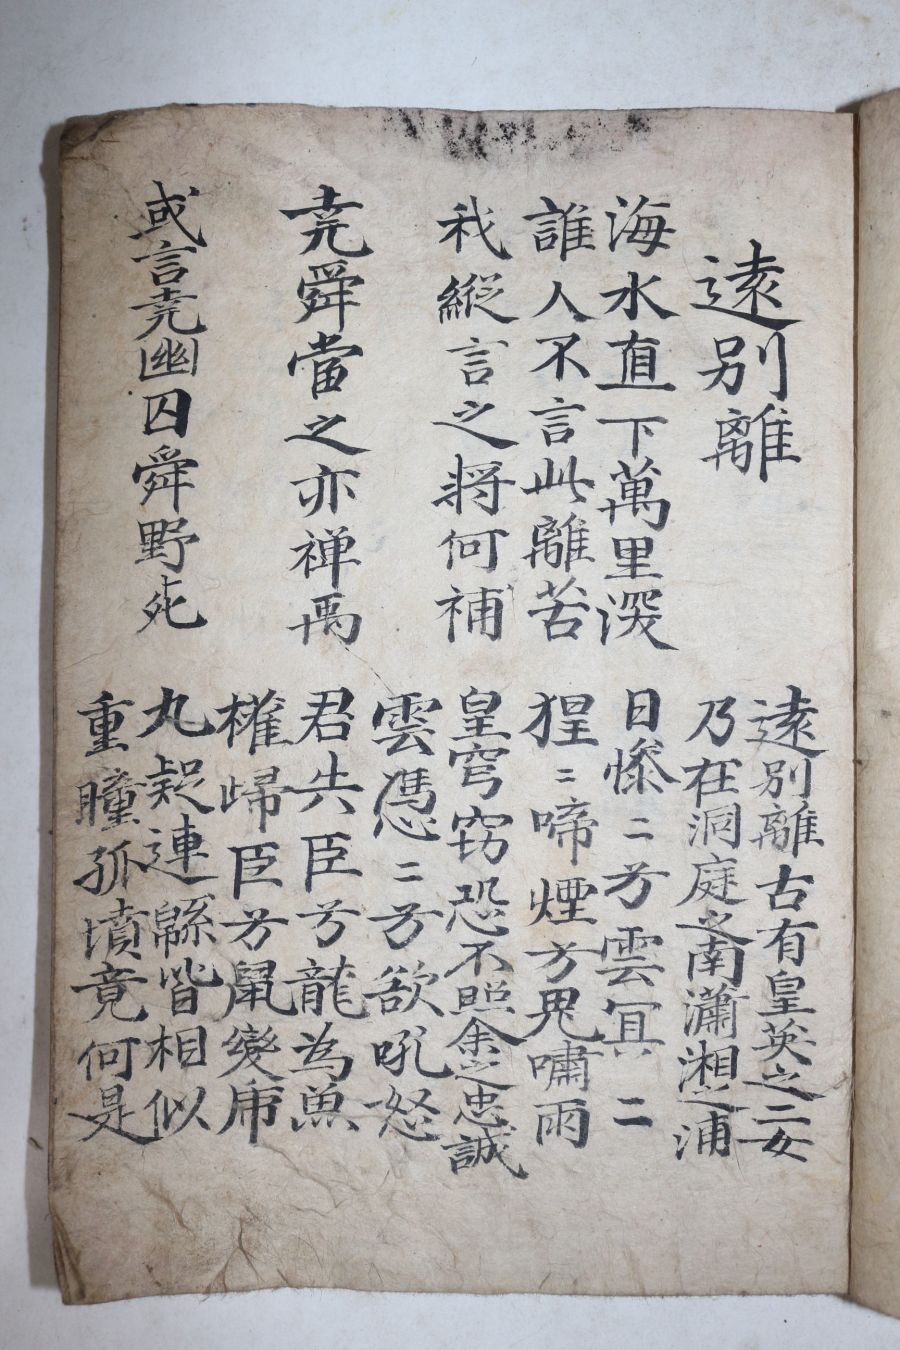 遠別離
遠別離古有皇英之二女
乃在洞庭之南瀟湘之浦
海水直下萬里深
誰人不言此離苦
日慘二兮雲冥二
猩二啼煙兮鬼嘯雨
我縱言之將何補
皇穹窃恐不照余之忠誠
雲憑二兮欲吼怒
尭舜當之亦禅禹
君失臣兮龍為魚
權歸臣兮鼠變虎
或言尭幽囚舜野死
丸疑連緜皆相似
重瞳孤墳竟何是